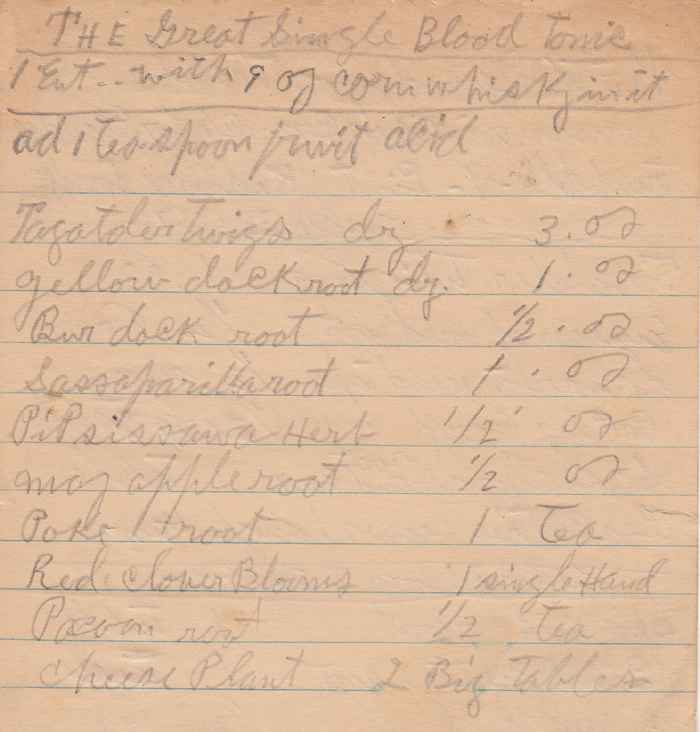 THE Great Single Blood Tonic
1 Ent.. with 9 oz corn whisky in it
ad 1 tea spoon fruit acid
Tagalder Twigs dry 3. oz
yellow dock root dry. 1. oz
Bur dock root 1/2. oz
Sassaparilla root 1. oz
PiPsissawa Herb 1/2 oz
may apple root 1/2 oz
Poke root 1 Tea
Red Clover Blooms 1 single Hand
Pocoon root 1/2 Tea
cheese Plant 2 Big Tables